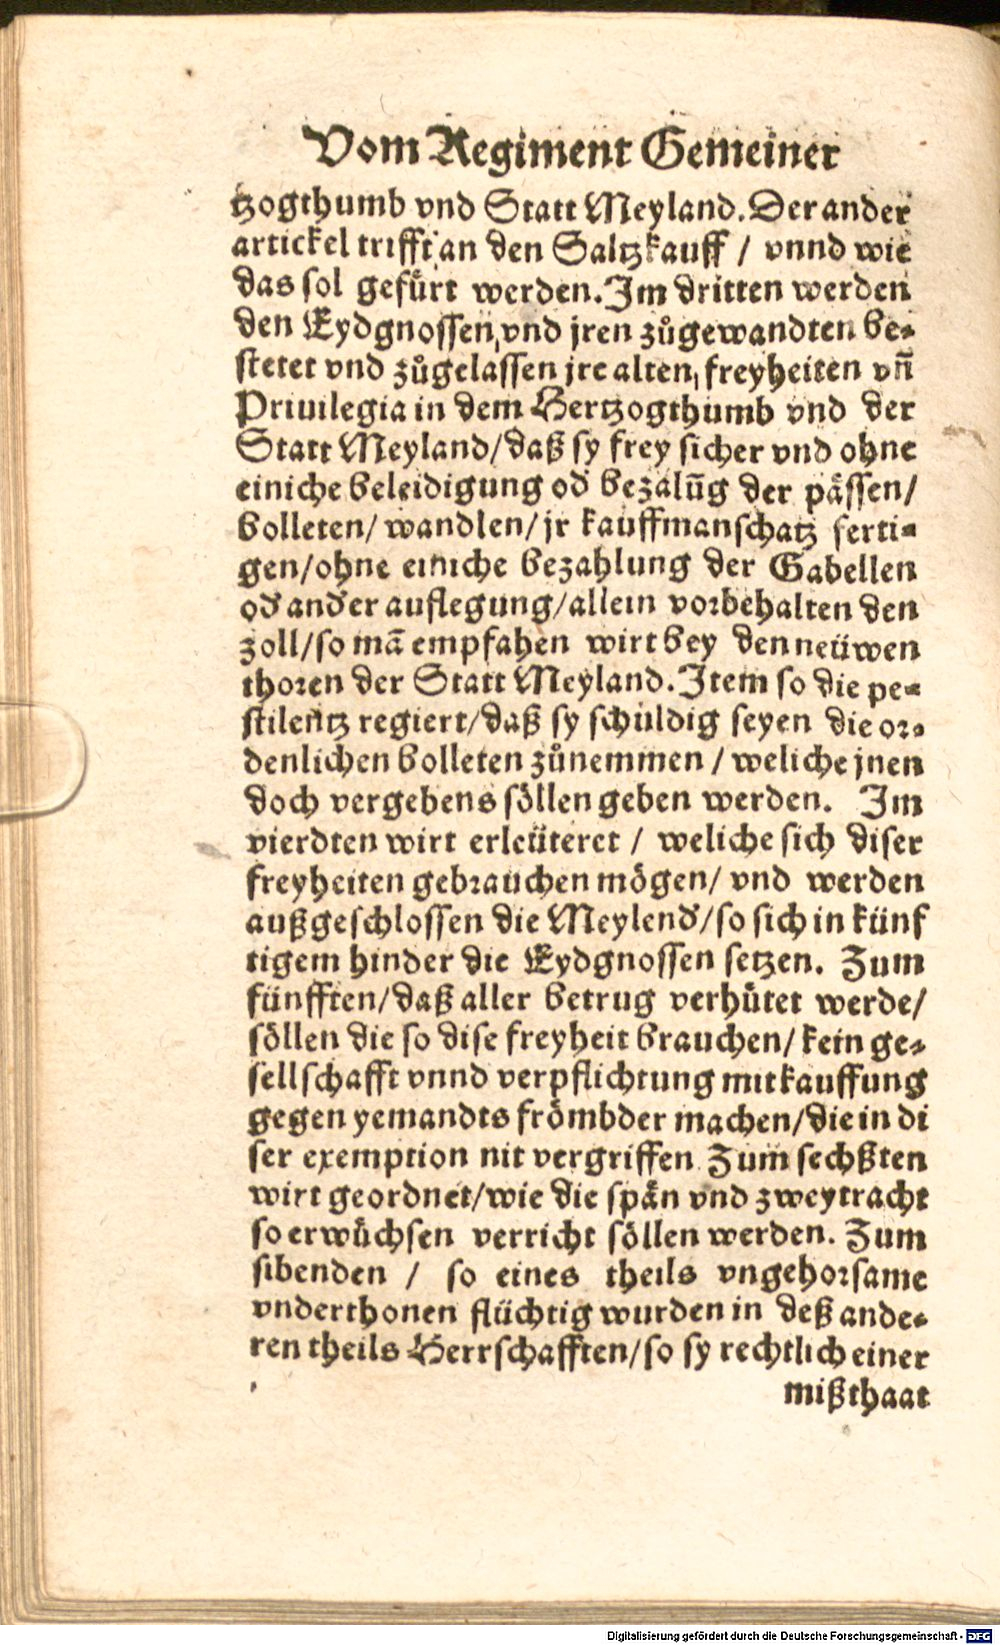 Vom Regiment Gemeiner
tzogthumb vnd Statt Meyland. Der ander
artickel trifft an den Saltzkauff / vnnd wie
das sol gefuͤrt werden. Im dritten werden
den Eydgnossen, vnd jren zůgewandten be-
stetet vnd zůgelassen jre alten, freyheiten vñ
Priuilegia in dem Hertzogthumb vnd der
Statt Meyland/daß sy frey sicher vnd ohne
einiche beleidigung od’ bezalũg der paͤssen/
bolleten/ wandlen/ jr kauffmanschatz ferti-
gen/ohne einiche bezahlung der Gabellen
od’ and’er auflegung/allein vorbehalten den
zoll/so mã empfahen wirt bey den neüwen
thoren der Statt Meyland. Item so die pe-
stilentz regiert/daß sy schuldig seyen die or-
denlichen bolleten zůnemmen / weliche jnen
doch vergebens soͤllen geben werden. Im
vierdten wirt erleüteret / weliche sich diser
freyheiten gebrauchen moͤgen/ vnd werden
außgeschlossen die Meylend’/so sich in künf
tigem hinder die Eydgnossen setzen. Zum
fünfften/daß aller betrug verhuͤtet werde/
soͤllen die so dise freyheit brauchen/ kein ge-
sellschafft vnnd verpflichtung mit kauffung
gegen yemandts froͤmbder machen/die in di
ser exemption nit vergriffen Zum sechßten
wirt geordnet/wie die spaͤn vnd zweytracht
so erwuͤchsen verricht soͤllen werden. Zum
sibenden / so eines theils vngehorsame
vnderthonen flüchtig wurden in deß ande-
ren theils Herrschafften/so sy rechtlich einer
mißthaat
Digitalisierung gefördert durch die Deutsche Forschungsgemeinschaft - DFG